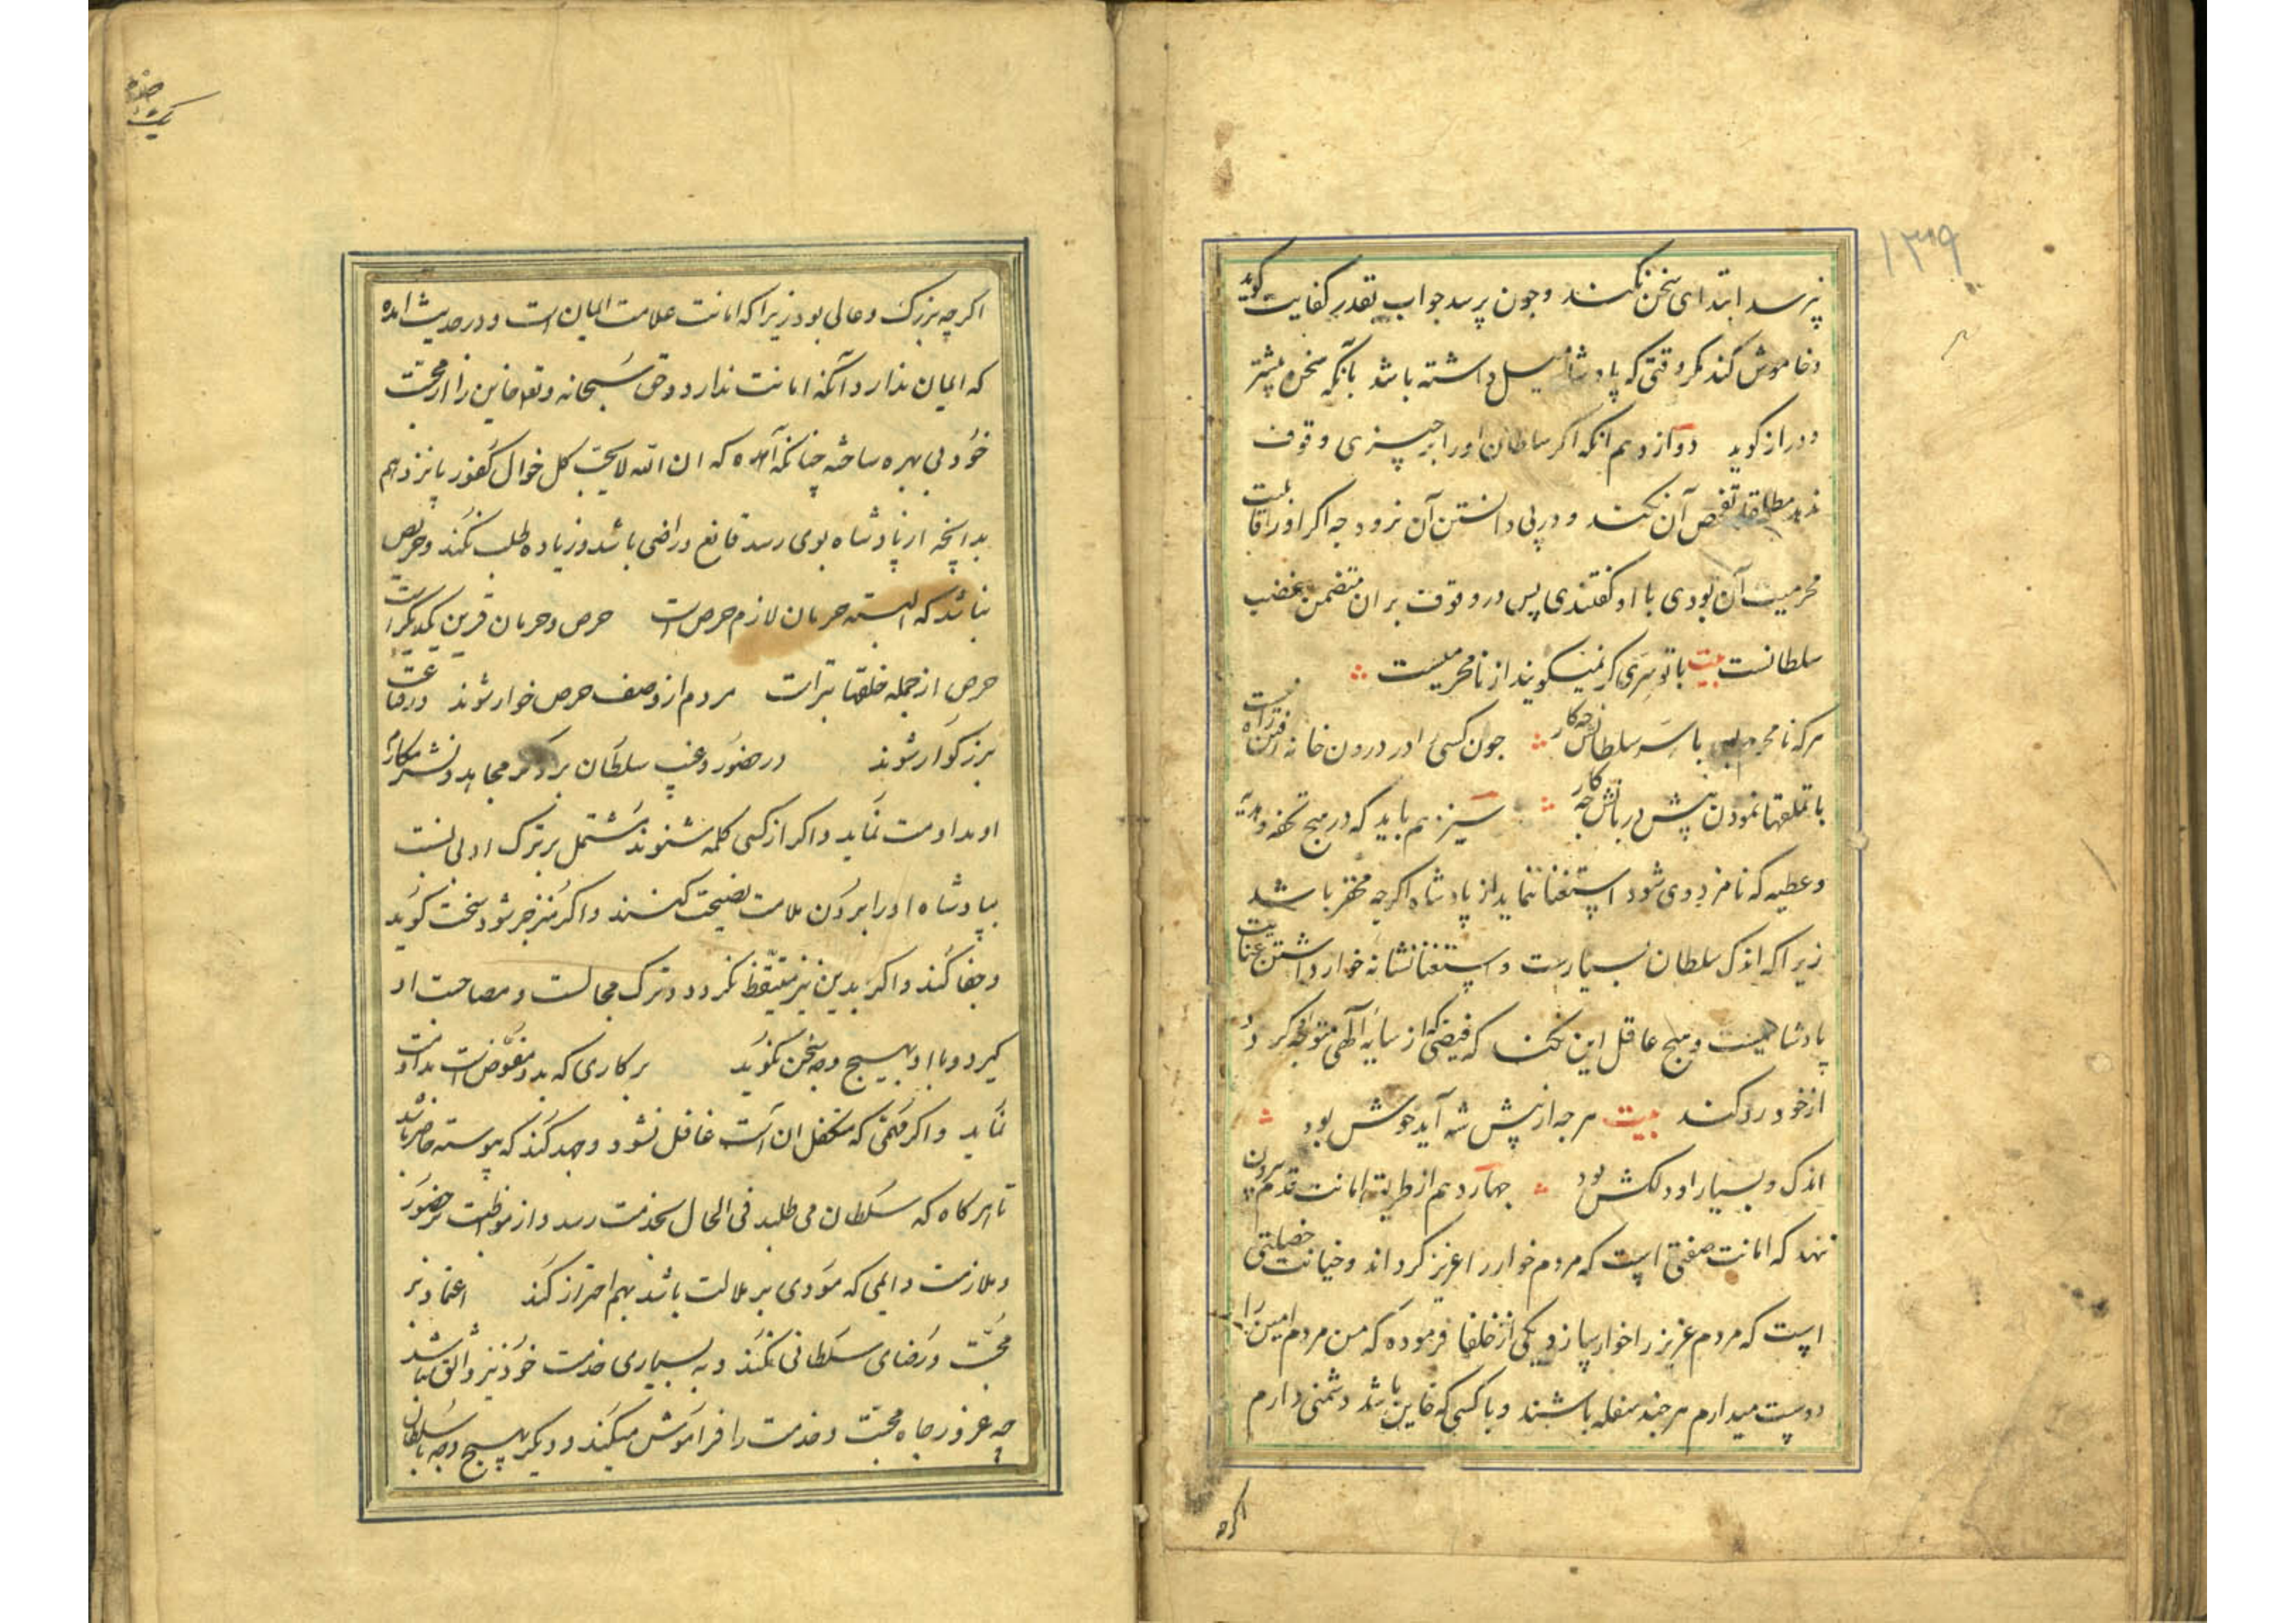 ۱۳۹
نپرسد ابتدای سخن نکند و چون پرسد جواب بقدر کفایت گوید
و خاموش کند مگر وقتی که پادشاه میل داشته باشد بآنکه سخن بیشتر
و دراز گوید دوازدهم انکه اگر سلطان اورا بر چیزی وقوف
ندهد مطلقا تفحص آن نکند و در پی دانستن آن نرود چه اگر اورا قابلیت
محرمیت آن بودی با او گفتندی پس در وقوف بران متضمن غضب
سلطانست بیت با تو سری گر نمیگویند از نامحرمیست
هرکه نامحرم با سر سلطانش چکار چون کسی را در درون خانه
با تملقها نمودن پیش دربانش چه کار سیزدهم باید که در هیچ تحفه و هدیه
و عطیه که نامزد وی شود استغنا ننماید از پادشاه اگرچه محقر باشد
زیرا که اندک سلطان بسیارست و استغنا نشانه خوار داشتن عنایت
پادشاهیست و هیچ عاقل این نکند که فیضی که از سایه الهی متوجه او گردد
از خود رد کند بیت هرچه از پیش شه آید خوش بود
اندک و بسیار او دلکش بود چهاردهم از طریقه امانت قدم بیرون
ننهد که امانت صفتی است که مردم خوار را عزیز گرداند و خیانت خصلتی
است که مردم عزیز را خوار سازد و یکی از خلفا فرموده که من مردم امین را
دوست میدارم هرچند سفله باشند و با کسی که خاین باشد دشمنی دارم
اگرچه
اگرچه بزرگ و عالی بود زیرا که امانت علامت ایمان است و در حدیث امده
که ایمان ندارد آنکه امانت ندارد و حق سبحانه و تع خاین را از محبت
خود بی بهره ساخته چنانکه آمده که ان الله لا یحب کل خوان کفور پانزدهم
بدانچه از پادشاه بوی رسد قانع و راضی باشد و زیاده طلب نکند و حریص
نباشد که البته حرمان لازم حرص است حرص و حرمان قرین یکدیگر است
حرص از جمله خلقها بتر است مردم از وصف حرص خوار شوند در قناعت
بزرگوار شوند در حضور و غیب سلطان بر ذکر محامد و نشر مکارم
او مداومت نماید و اگر از کسی کلمه شنوند مشتمل بر ترک ادبی نسبت
بپادشاه اورا بر دن ملامت نصیحت کنند و اگر منزجر شود سخت گوید
و جفا کند و اگر بدین نیز متیقظ نگردد و ترک مجالست و مصاحبت او
گیرد و با او بهیچ وجه سخن نگوید بر کاری که بدو مفوض است مداومت
نماید و اگر مهمی که متکفل ان است غافل نشود و جهد کند که پیوسته حاضر باشد
تا هرگاه که سلطان می طلبد فی الحال بخدمت رسد و از مواظبت بر حضور
و ملازمت دایمی که مودی بر ملالت باشد بهم احتراز کند اعتماد بر
محبت و رضای سلطانی نکند و به بسیاری خدمت خود نیز واثق نباشد
چه غرور جاه محبت و خدمت را فراموش میکند و دیگر بهیچ وجه با سلطان